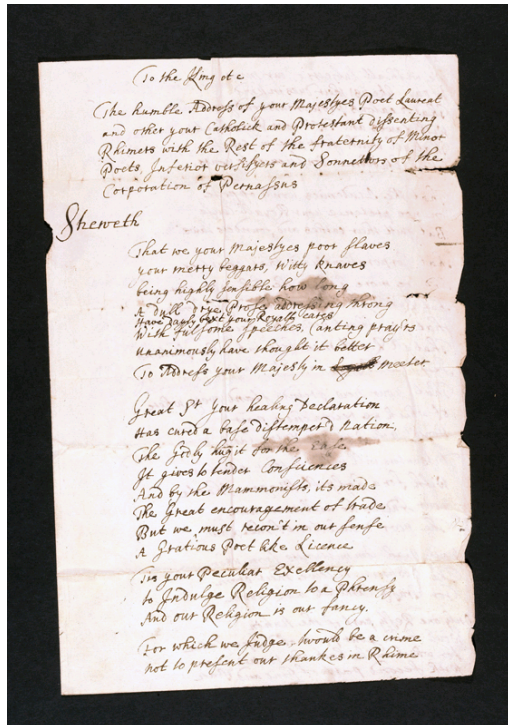 To the King etc
The humble Address of your Majestyes Poet Laureat
and other your Catholick and Protestant dissenting
Rhimers with the Rest of the fraternity of Minor
Poets, Inferior versifyers and Sonnetters of the
Corporation of Pernassus
Sheweth
That we your Majestyes poor slaves
your merry beggars, witty knaves
being highly sensible how long
A dull drye Prosey addressing throng
Have dayly vext your Royall eares
With fulsome speeches, Canting prayrs
Unanimously have thought it better
To Address your Majesty in meeter
Great Sr your healing Declaration
Has cured a base distemper'd Nation,
The Godly hug it for the Ease
It gives to tender Consciences
And by the Mammonists, its made
The Great encouragement of trade
But we must recon't in our sense
A Gratious Poet like Licence
Tis your Peculiar Exellency
to Indulge Religion to a Phrensy
And our Religion is our fancy.
For which we Judge, 'twould be a crime
not to present our thankes in Rhime